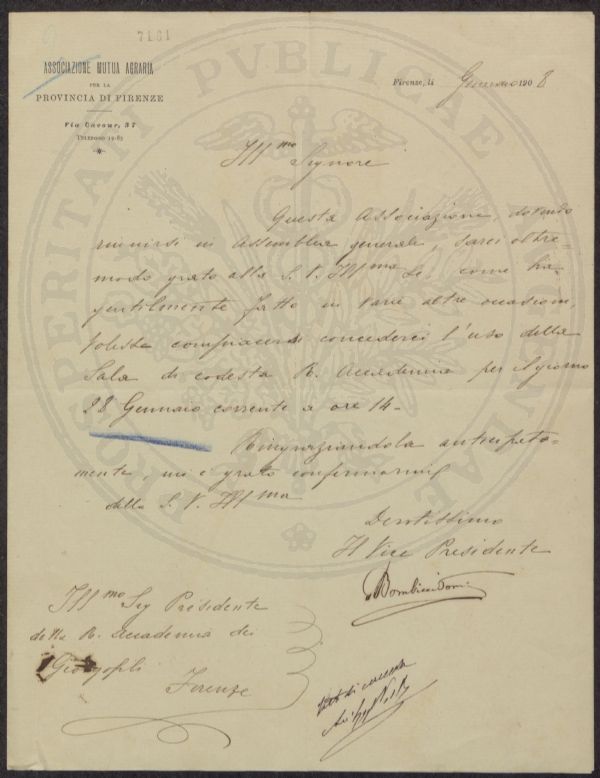 7161
ASSOCIAZIONE MUTUA AGRARIA
PER LA
PROVINCIA DI FIRENZE
Via Cavour, 37
TELEFONO 19-85
Firenze, li Gennaio 1908
Ill.mo Signore
Questa Associazione, dovendo
riunirsi in Assemblea generale, sarei oltre-
modo grato alla S. V. Ill.ma se, come ha
gentilmente fatto in varie altre occasioni,
volesse compiacersi concederci l'uso della
Sala di codesta R. Accademia per il giorno
28 Gennaio corrente a ore 14.
Ringraziandola anticipata-
mente, mi è grato confermarmi
della S. V. Ill.ma
Devotissimo
Il Vice Presidente
Ill.mo Sig Presidente
della R. Accademia dei
Georgofili
Firenze
PROSPERITATI PVBLICAE AVGENDAE